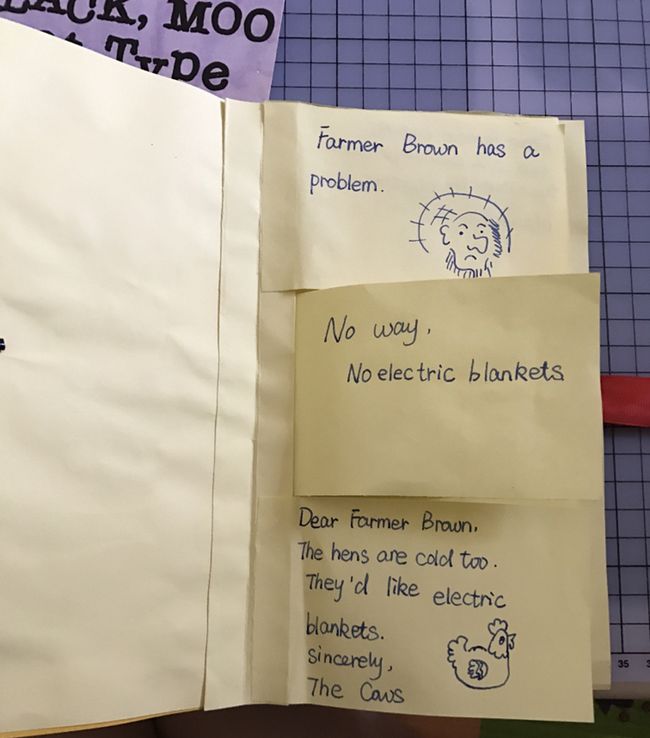 ACK, MOO
Type
Farmer Brown has a
problem.
No way,
No electric blankets
Dear Farmer Brown,
The hens are cold too.
They'd like electric
blankets.
sincerely,
The Cows
35